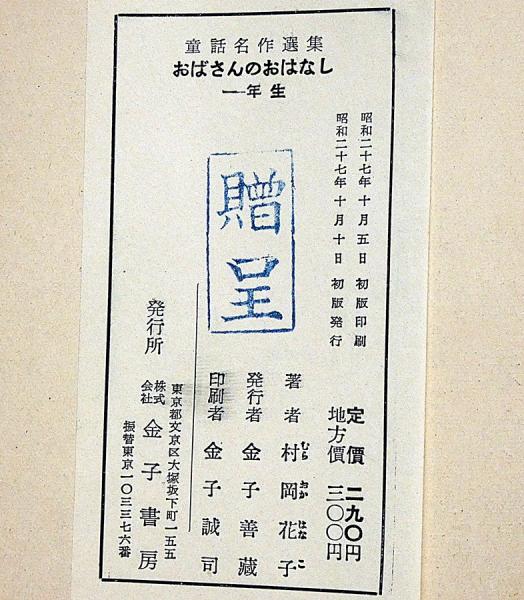 童話名作選集
おばさんのおはなし
一年生
昭和二十七年十月五日 初版印刷
昭和二十七年十月十日 初版発行
贈呈
定價 二九〇円
地方價 三〇〇円
著者 村岡花子
むら おか はな こ
発行者 金子善藏
印刷者 金子誠司
東京都文京区大塚坂下町一五五
発行所 株式会社 金子書房
振替東京一〇三三七六番